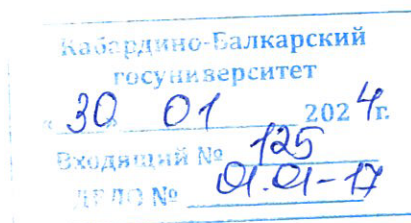 Кабардино-Балкарский
госуниверситет
« 30 » 01 2024 г.
Входящий № 125
ДЕЛО № 01.01-17